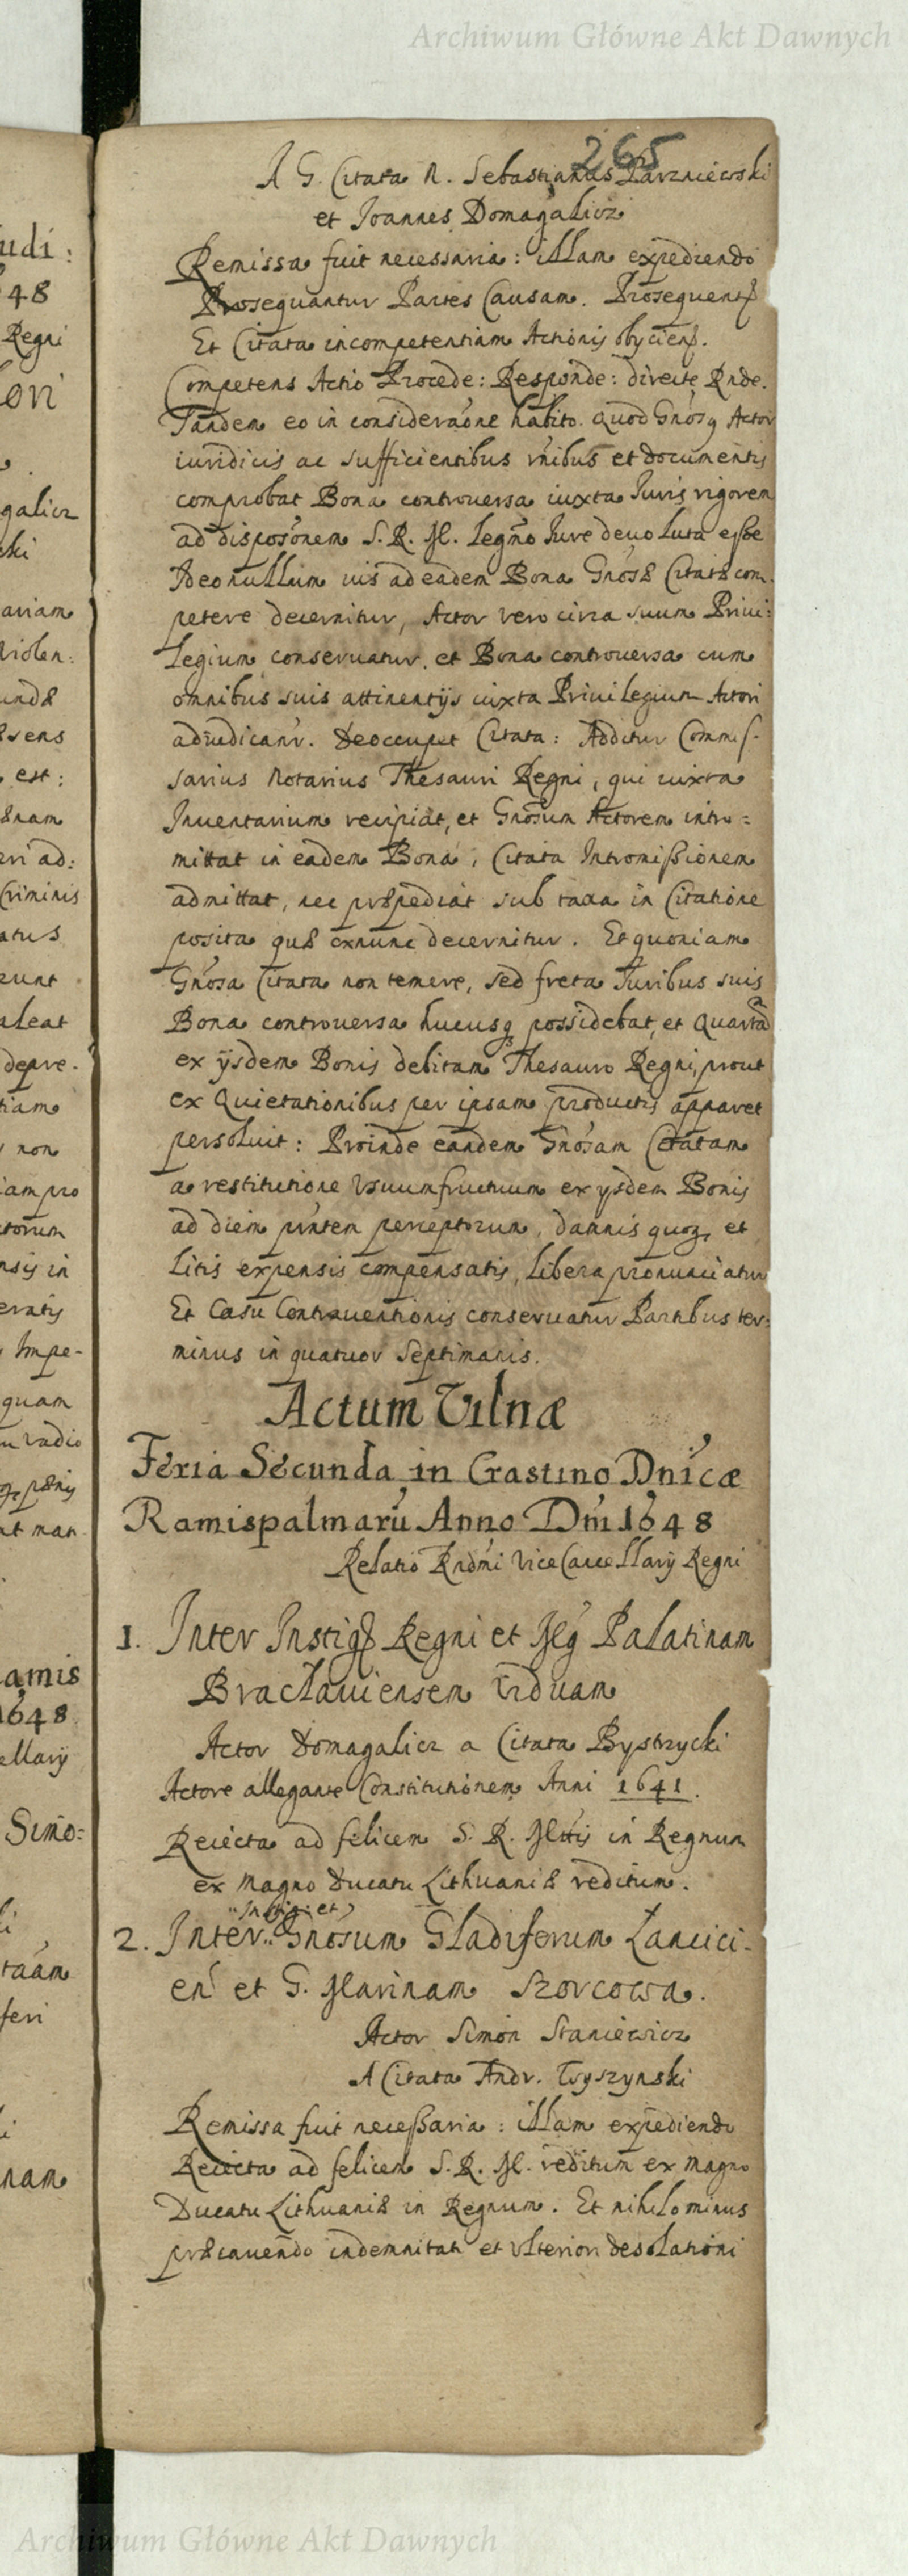 Archiwum Główne Akt Dawnych
265
A G. Citata N. Sebastianus Parzniewski
et Joannes Domagalicz
Remissa fuit necessaria: illam expediendo
Prosequantur Partes Causam. Prosequent
Et Citata incompetentiam Actionis obycien.
Competens Actio Procede: Responde: directe Rnde.
Tandem eo in consideraone habito. quod Gnosq Actor
iuridicis ac sufficientibus rnibus et documentis
comprobat Bona controversa iuxta Juris rigorem
ad disposonem S. R. M. legno Jure devoluta esse
Ideo nullum uis ad eadem Bona Gnosæ Citatæ com-
petere decernitur, Actor vero circa suum Privi:
legium conservatur, et Bona controversa cum
omnibus suis attinentijs iuxta Privilegium Actori
adiudicanr. Deoccupet Citata: Additur Commis-
sarius Notarius Thesauri Regni, qui iuxta
Inventarium recipiat, et Gnosum Actorem intro=
mittat in eadem Bona, Citata Intromissionem
admittat, nec præpediat sub taxa in Citatione
posita quæ exnunc decernitur. Et quoniam
Gnosa Citata non temere, sed freta Juribus suis
Bona controversa hucusq possidebat, et Quarta
ex ijsdem Bonis debitam Thesauro Regni, prout
ex Quietationibus per ipsam productis apparet
persoluit: Proinde eandem Gnosam Citatam
a restitutione Vsuumfructuum ex ysdem Bonis
ad diem pntem perceptorum, damnis quoq, et
litis expensis compensatis, libera pronunciatur
Et Casu Contraventionis conservatur Partibus ter:
minus in quatuor Septimanis.
Actum Vilnæ
Feria Secunda in Crastino Dnicæ
Ramispalmaru Anno Dni 1648
Relatio Rndmi ViceCancellarij Regni
1. Inter Instig Regni et Mg Palatinam
Braclaviensem Viduam
Actor Domagalicz a Citata Bystrzycki
Actore allegante Constitutionem Anni 1641.
Reiecta ad felicem S. R. Mttis in Regnum
ex Magno Ducatu Lithuaniæ reditum.
Instig: et
2. Inter Gnosum Gladiferum Lancici-
en et G. Marinam Szorcowa.
Actor Simon Staniewicz
A Citata Andr. Tyszynski
Remissa fuit necessaria: illam expediendo
Reiecta ad felicem S. R. M. reditum ex Magno
Ducatu Lithuaniæ in Regnum. Et nihilominus
præcavendo indemnitati et ulteriori desolationi
udi:
48
Regni
ori
galicz
ski
ariam
violen:
undæ
æsens
est:
eri ad:
Criminis
atus
runt
aleat
depre-
tiam
non
iam pro
ctorum
nsis in
eratis
Impe-
quam
vadio
pænis
nt man
amis
1648
ellarij
Simo=
taam
feri
nam
Archiwum Główne Akt Dawnych